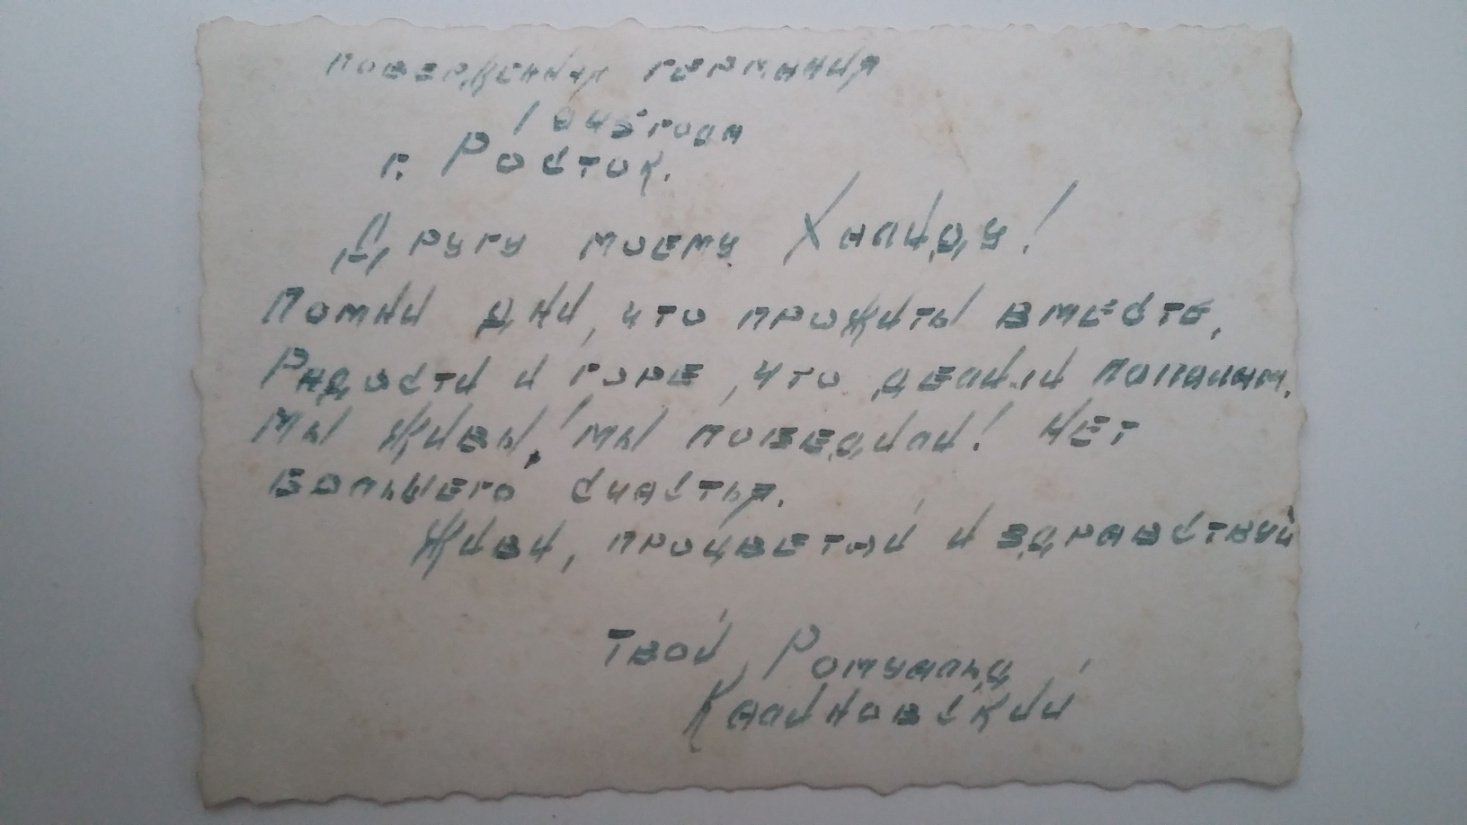 поверженная германия
1945 года
г. Росток.
Другу моему Халиду!
Помни дни, что прожиты вместе,
Радости и горе, что делили пополам.
Мы живы, мы победили! Нет
большего счастья.
Живи, процветай и здравствуй
Твой Ромуальд
Калиновский